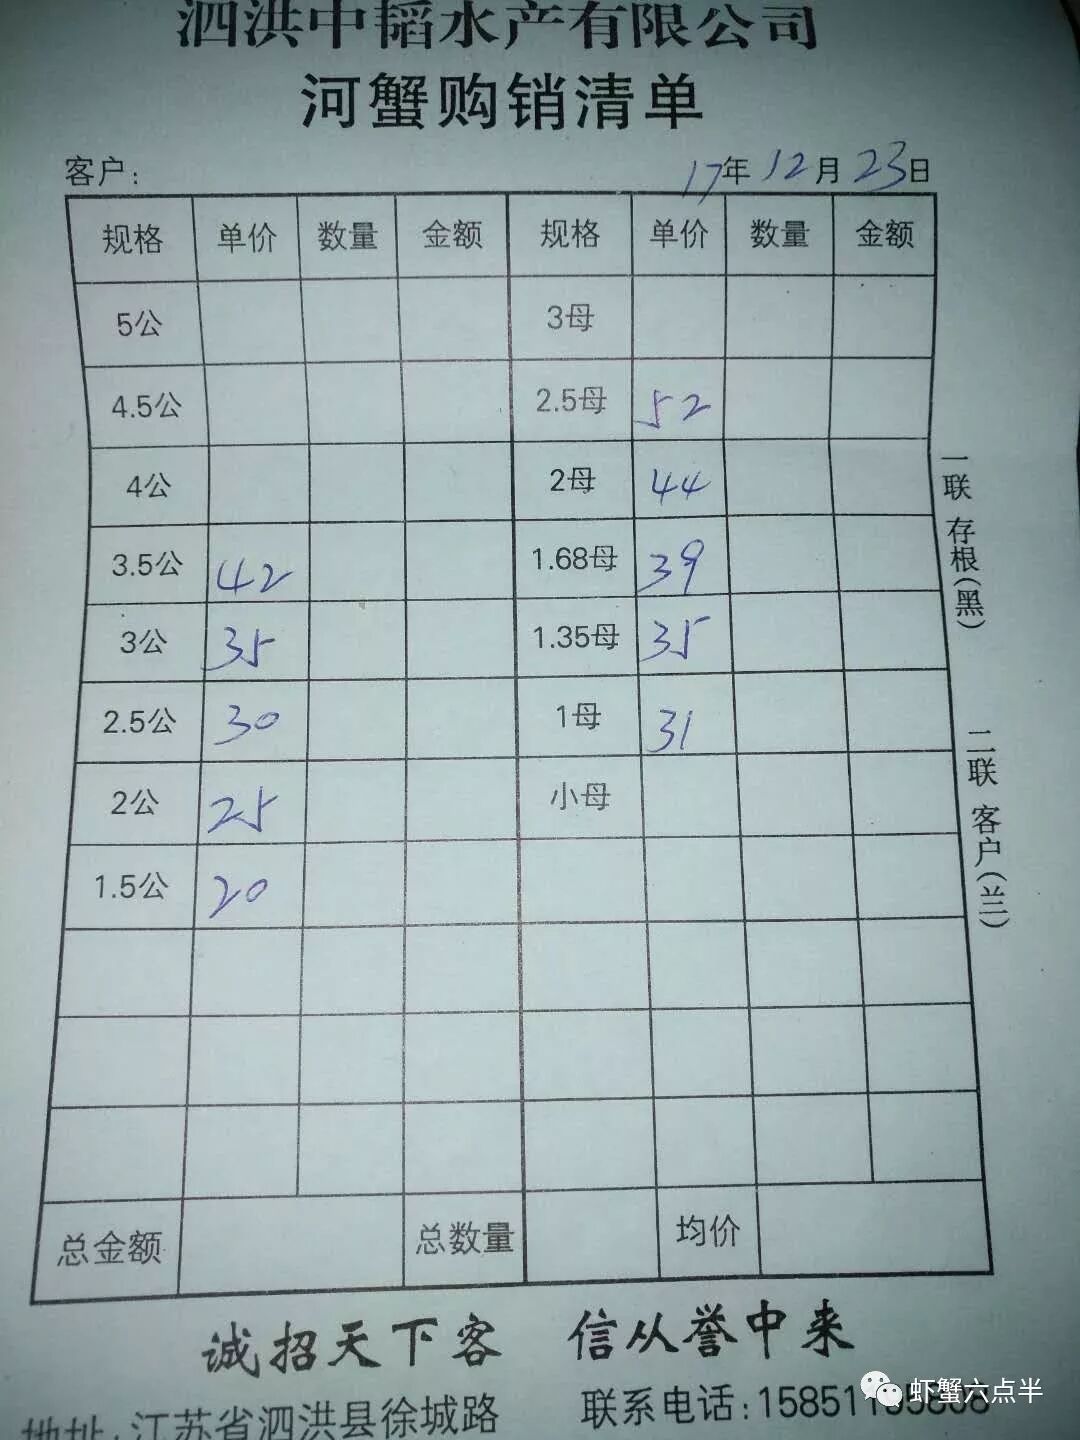 泗洪中韬水产有限公司
河蟹购销清单
客户: 17年12月23日
规格 单价 数量 金额 规格 单价 数量 金额
5公 3母
4.5公 2.5母 52
4公 2母 44
3.5公 42 1.68母 39
3公 35 1.35母 35
2.5公 30 1母 31
2公 25 小母
1.5公 20
总金额 总数量 均价
一联 存根(黑)
二联 客户(兰)
诚招天下客 信从誉中来
地址:江苏省泗洪县徐城路 联系电话:
虾蟹六点半